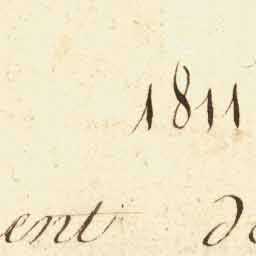 1811
ent de